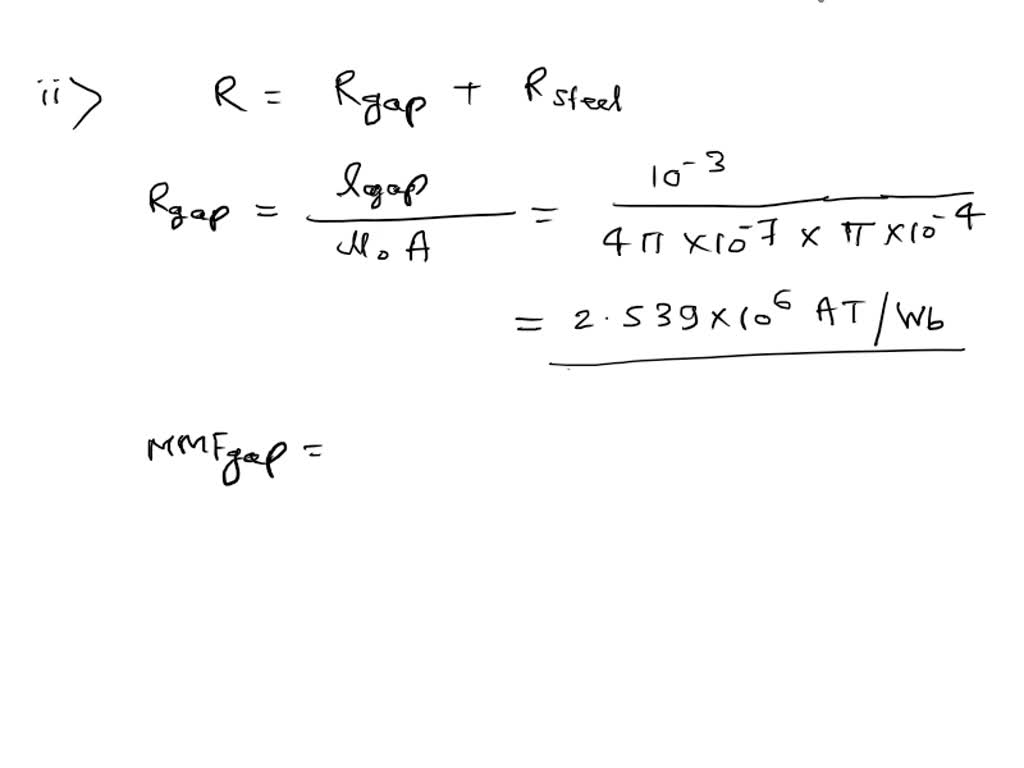 ii> R = Rgap + Rsteel
Rgap = lgap / μ₀A = 10⁻³ / 4π × 10⁻⁷ × π × 10⁻⁴
= 2.539 × 10⁶ AT/Wb
MMFgap =